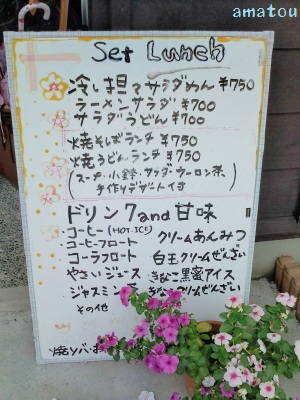 amatou
Set Lunch
冷し担々サラダめん ¥750
ラーメンサラダ ¥700
サラダうどん ¥700
焼そばランチ ¥750
焼うどんランチ ¥750
(スープ・小鉢・サラダ・ウーロン茶
手作りデザート付)
ドリンク and 甘味
コーヒー(HOT.ICE) クリームあんみつ
コーヒーフロート 白玉クリームぜんざい
コーラフロート きなこ黒蜜アイス
やさいジュース クリームぜんざい
ジャスミン
その他
焼ソバ・お